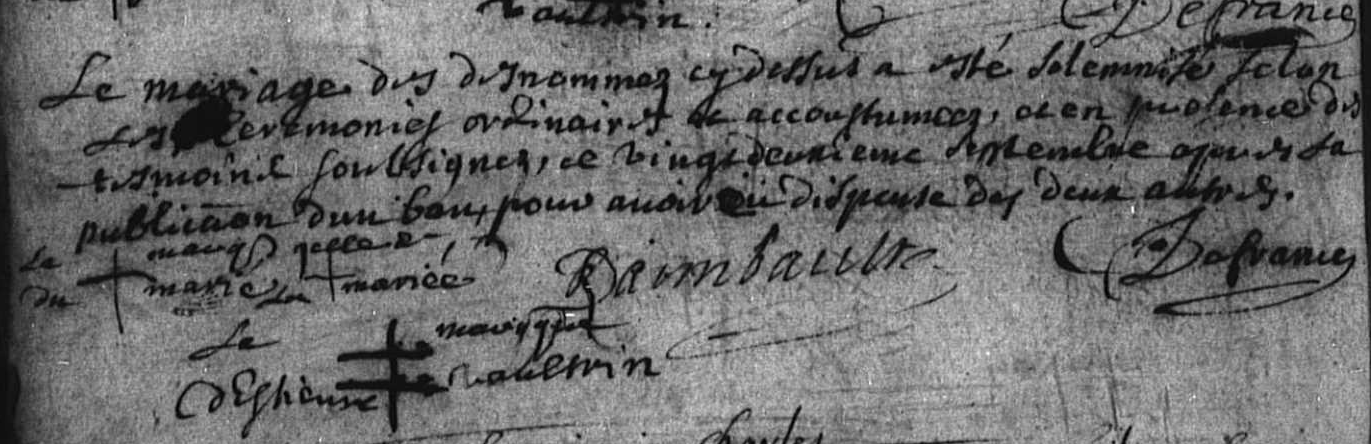 vaultrin.
Defrance
Le mariage des desnommez cy dessus a esté solemnisé selon
les ceremonies ordinaires et accoustumees, et en presence des
tesmoins soubsignez, ce vingt deuxieme septembre apres la
publication d'un ban, pour avoir eü dispense des deux autres.
La marq
du marié la mariée
Raimbault
Defrance
La marque
d'Estienne vaultrin
charles